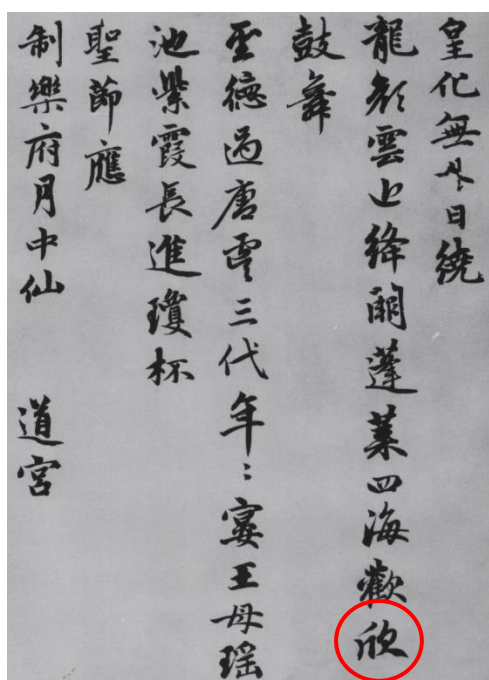 皇化無外日繞
龍顔雲近絳闕蓬萊四海歡欣
鼓舞
至德過唐虞三代年：宴王母瑶
池紫霞長進瓊杯
聖節應
制樂府月中仙　道宮